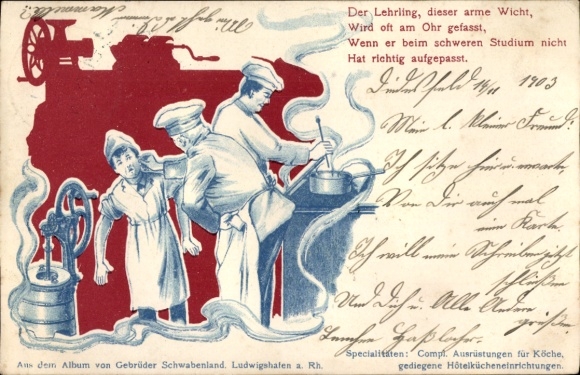 Der Lehrling, dieser arme Wicht,
Wird oft am Ohr gefasst,
Wenn er beim schweren Studium nicht
Hat richtig aufgepasst.
14/11 1903
Mein l. kleiner Freund!
Ich sitze hier u. warte
Von Dir auch mal
eine Karte.
Ich will mein Schreiben jetzt
schließen
Und Dich u. Alle Andern
grüßen
Wie geht es
Specialitäten: Compl. Ausrüstungen für Köche,
gediegene Hôtelkücheneinrichtungen.
Aus dem Album von Gebrüder Schwabenland. Ludwigshafen a. Rh.